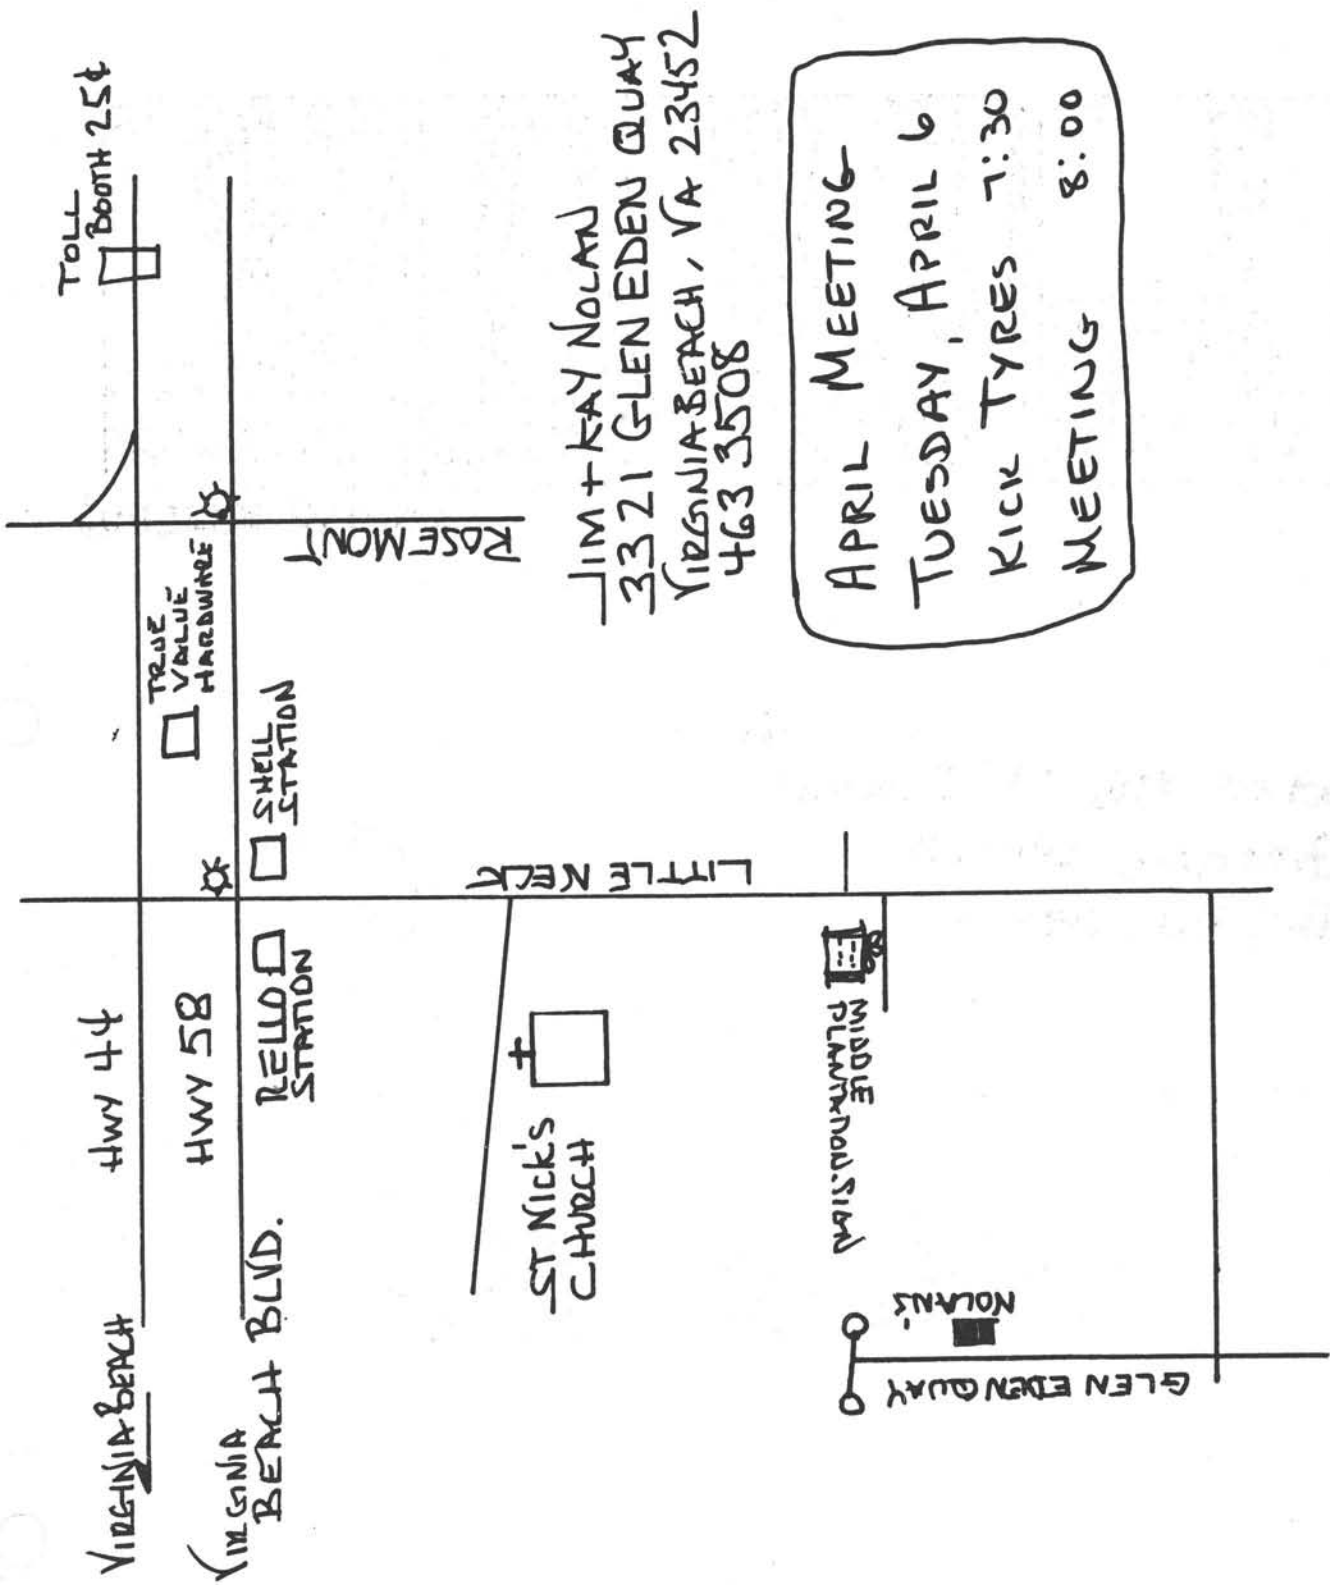 VIRGINIA BEACH
HWY 44
TOLL
BOOTH 25¢
HWY 58
TRUE
VALUE
HARDWARE
VIRGINIA
BEACH BLVD.
STATION
SHELL
STATION
ROSEMONT
LITTLE NECK
ST NICK'S
CHURCH
MIDDLE
PLANTATION SIGN
NOLANS'
GLEN EDEN QUAY
JIM + KAY NOLAN
3321 GLEN EDEN QUAY
VIRGINIA BEACH, VA 23452
463 3508
APRIL MEETING
TUESDAY, APRIL 6
KICK TYRES 7:30
MEETING 8:00